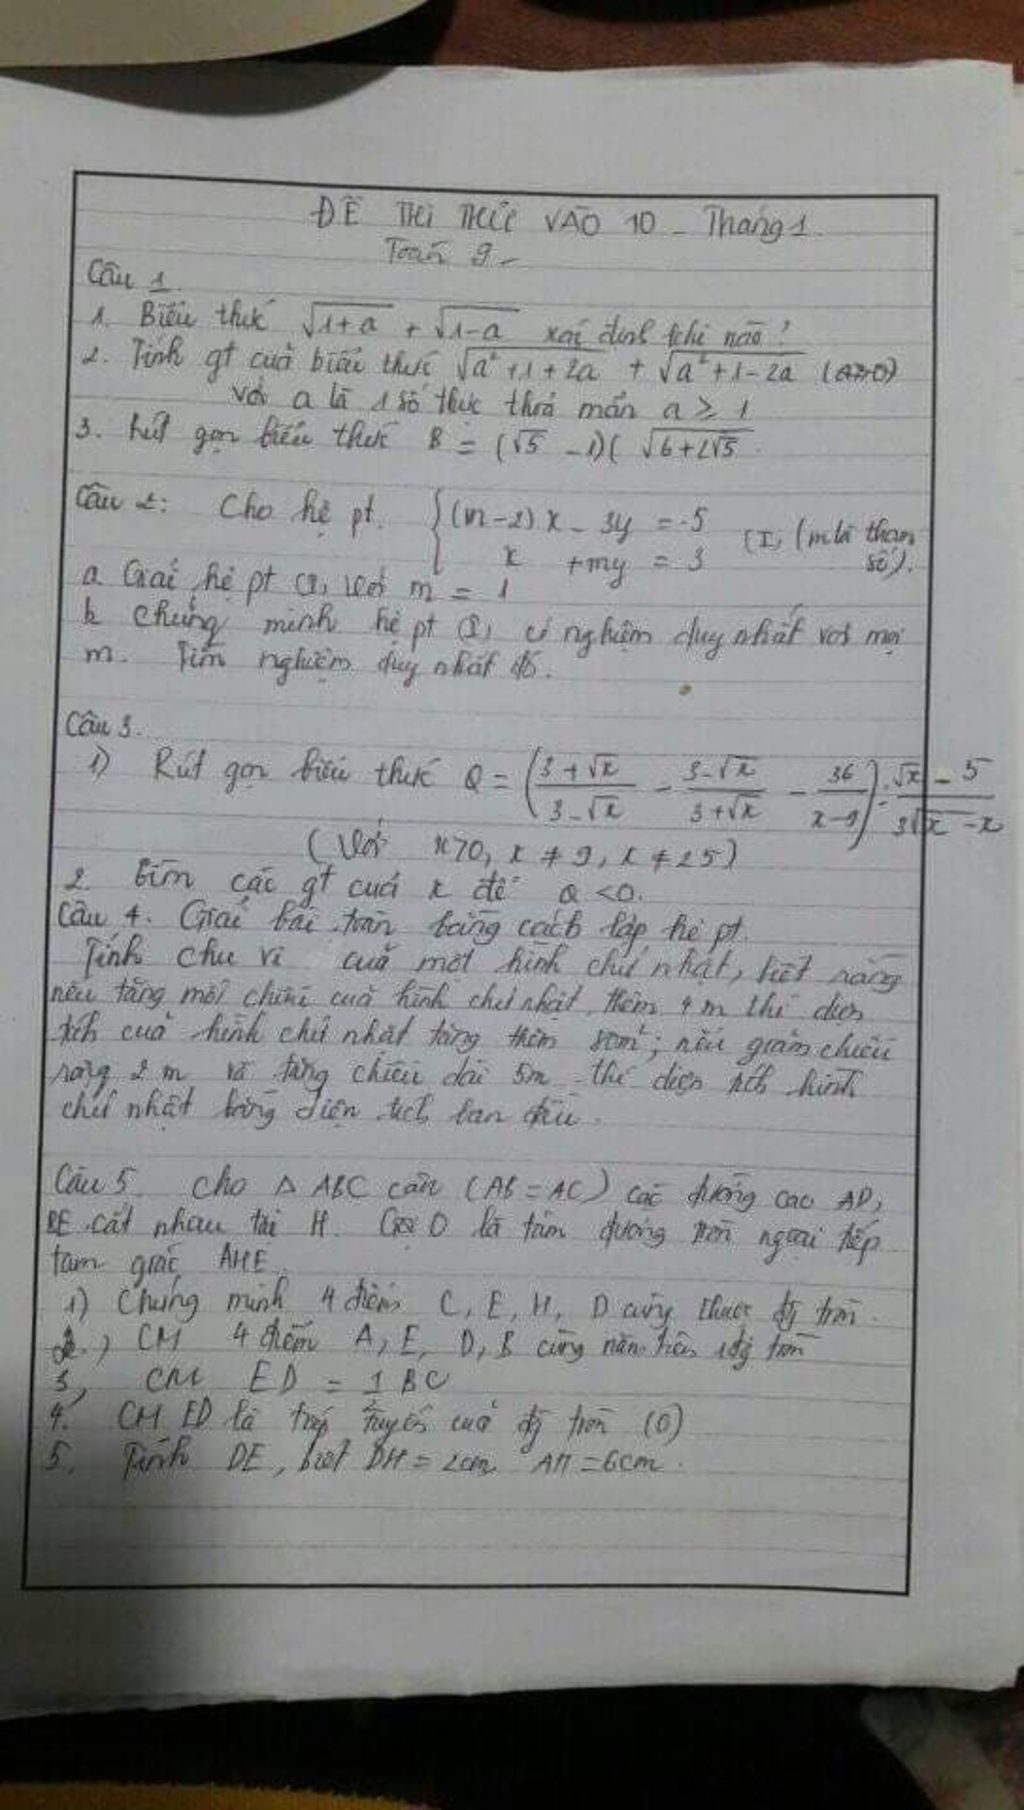 ĐỀ THI THỬ VÀO 10 - Tháng 1
Toán 9
Câu 1.
1. Biểu thức √1+a + √1-a xác định khi nào?
2. Tính gt của biểu thức √a²+1+2a + √a²+1-2a (a>0)
với a là 1 số thực thoả mãn a ≥ 1
3. Rút gọn biểu thức B = (√5 - 1)( √6+2√5
Câu 2: Cho hệ pt. { (m-2)x - 3y = -5
x + my = 3 (I) (m là tham số).
a. Giải hệ pt (I) với m = 1
b. chứng minh hệ pt (I) có nghiệm duy nhất với mọi
m. Tìm nghiệm duy nhất đó.
Câu 3.
1) Rút gọn biểu thức Q = (3+√x/3-√x - 3-√x/3+√x - 36/x-9) : √x - 5/3√x - x
(Với x>0, x ≠ 9, x ≠ 25)
2. Tìm các gt của x để Q < 0.
Câu 4. Giải bài toán bằng cách lập hệ pt.
Tính chu vi của một hình chữ nhật, biết rằng
nếu tăng mỗi chiều của hình chữ nhật thêm 4 m thì diện
tích của hình chữ nhật tăng thêm 80m²; nếu giảm chiều
rộng 2 m và tăng chiều dài 5m thì diện tích hình
chữ nhật bằng diện tích ban đầu.
Câu 5. Cho △ ABC cân (AB = AC) các đường cao AD,
BE cắt nhau tại H. Gọi O là tâm đường tròn ngoại tiếp
tam giác AHE.
1) Chứng minh 4 điểm C, E, H, D cùng thuộc đg tròn.
2.) CM 4 điểm A, E, D, B cùng nằm trên 1 đg tròn
3, CM ED = 1 BC
4. CM ED là tiếp tuyến của đg tròn (O)
5. Tính DE, biết DH = 2cm AH = 6cm.